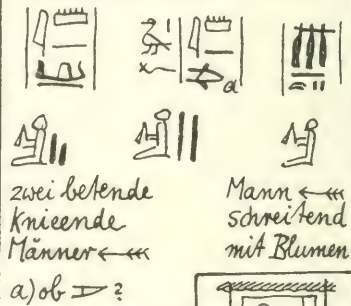 a
zwei betende
Knieende
Männer
Mann
schreitend
mit Blumen
a) ob ?